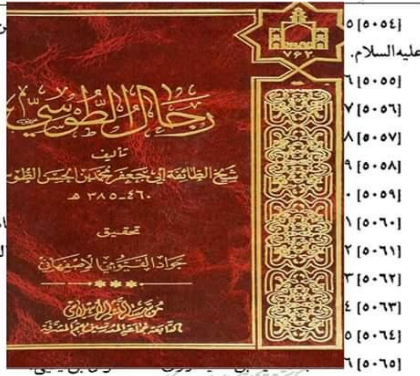 ٧٦٣
رجال الطوسي
تأليف
شيخ الطائفة أبي جعفر محمد بن الحسن الطو
٣٨٥-٤٦٠ هـ
تحقيق
جواد القيومي الإصفهاني
مؤسسة النشر الإسلامي
التابعة لجماعة المدرسين بقم المشرفة
[٥٠٥٤] ٥
عليه السلام.
[٥٠٥٥] ٦
[٥٠٥٦] ٧
[٥٠٥٧] ٨
[٥٠٥٨] ٩
[٥٠٥٩] ٠
[٥٠٦٠] ١
[٥٠٦١] ٢
[٥٠٦٢] ٣
[٥٠٦٣] ٤
[٥٠٦٤] ٥
[٥٠٦٥] ٦